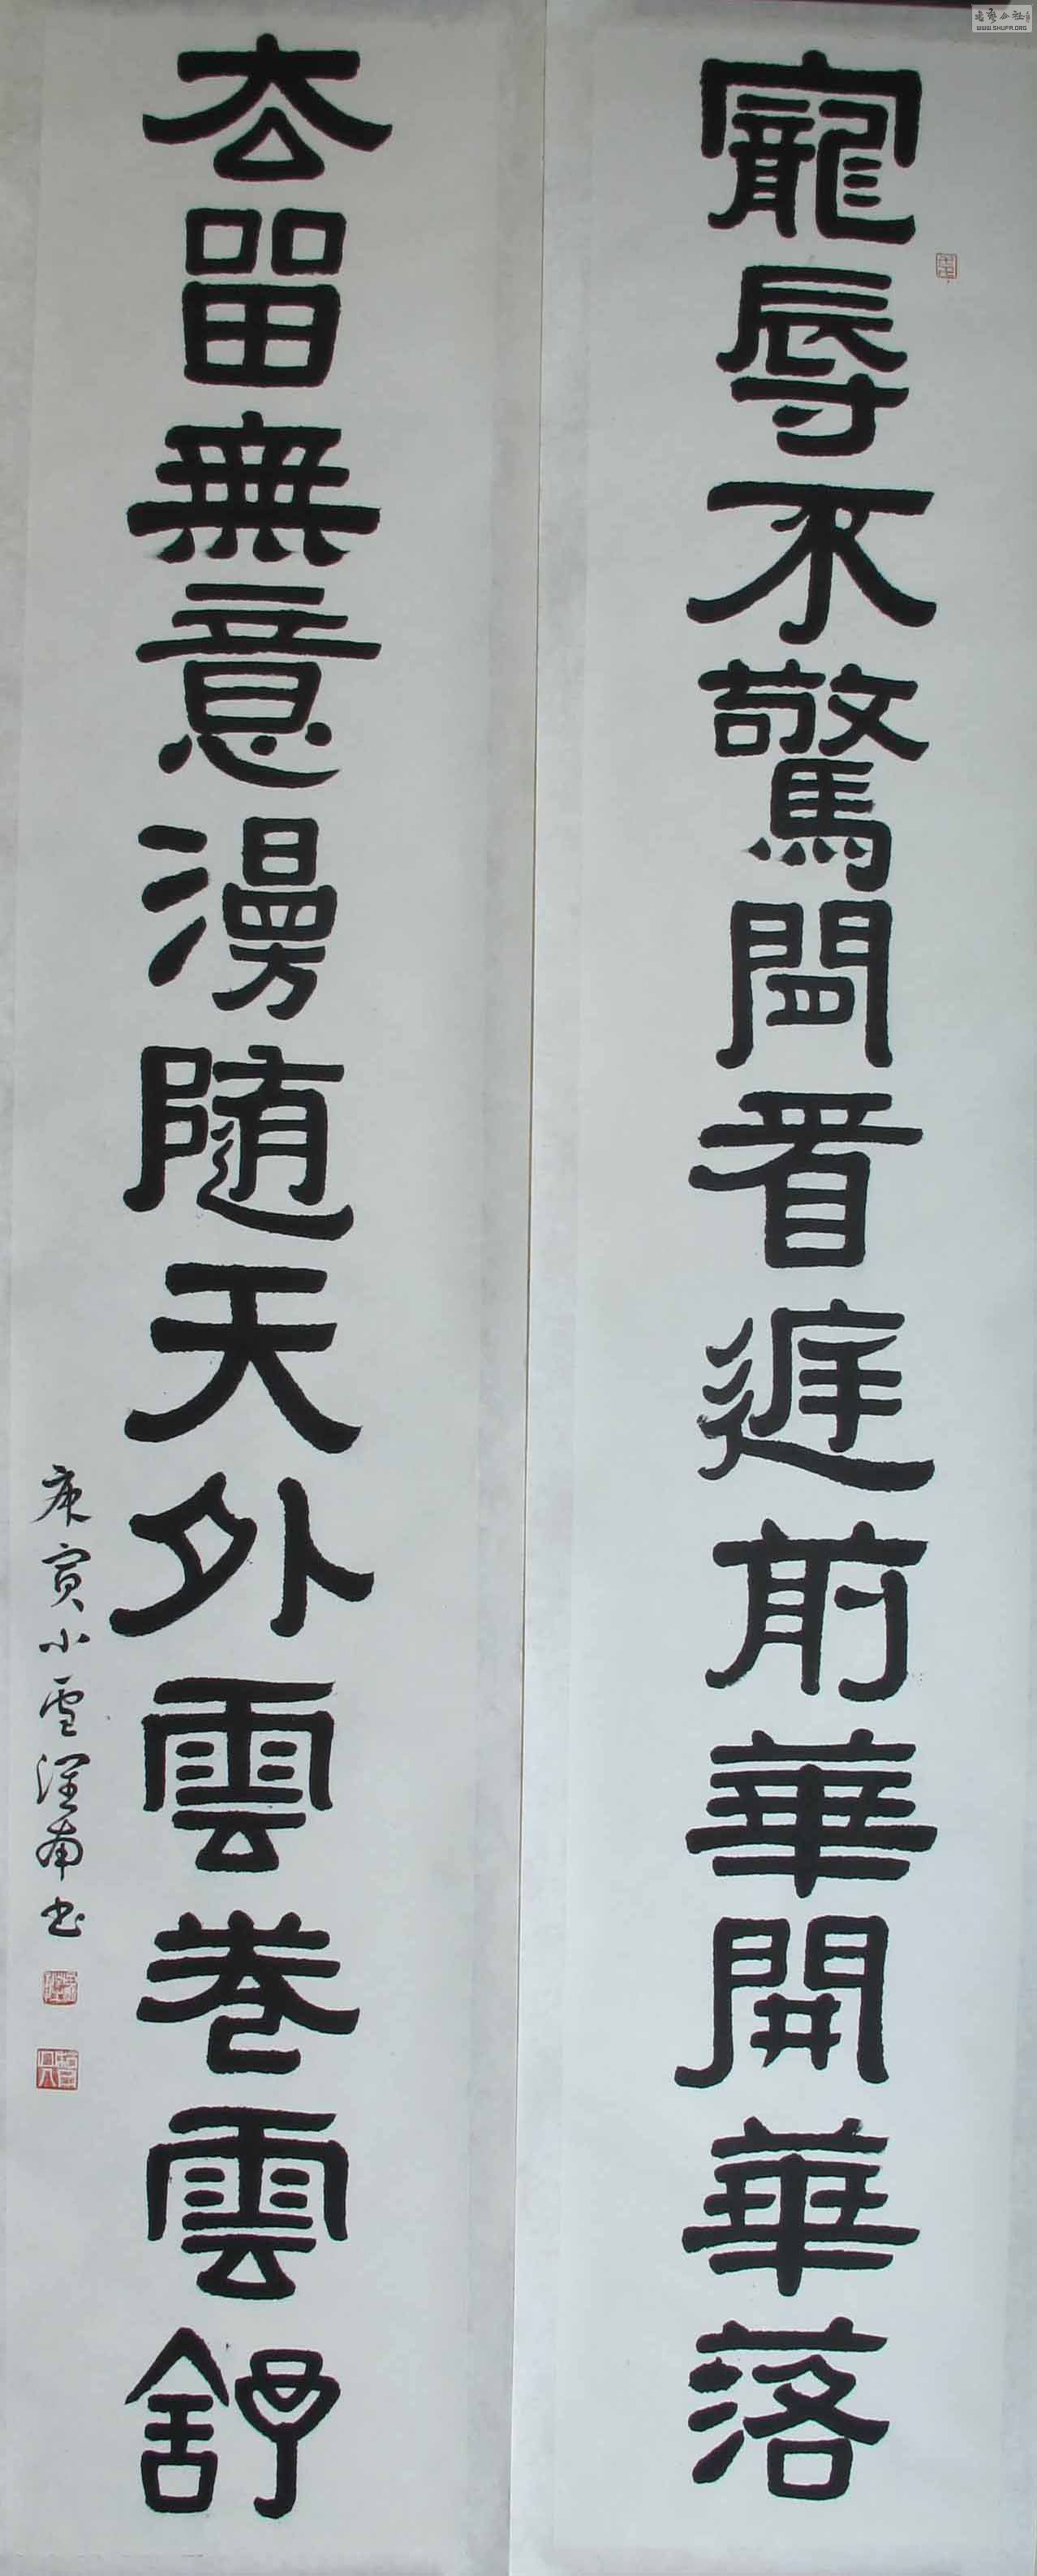 寵辱不驚閒看庭前華開華落
去留無意漫随天外雲卷雲舒
庚寅小雪潤甫书
WWW.SHUFA.ORG